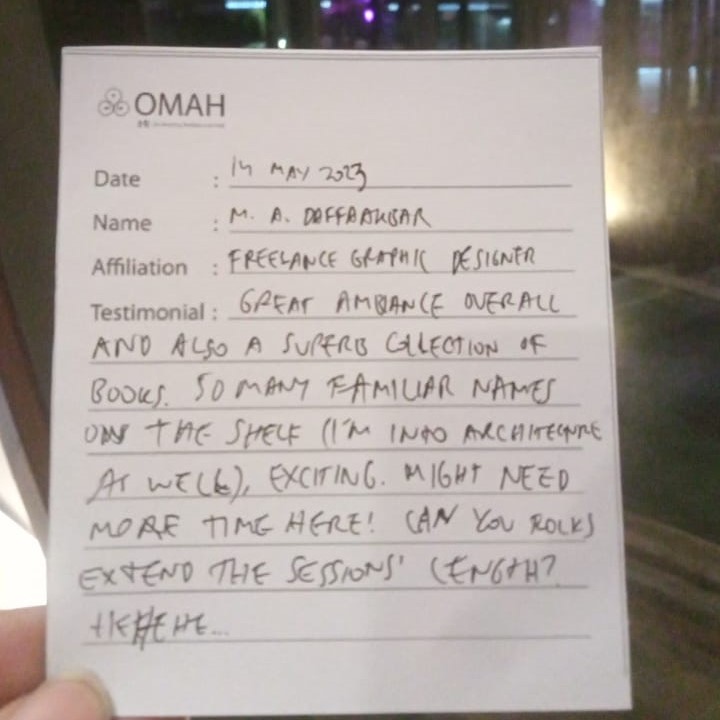 OMAH
Date : 14 MAY 2023
Name : M. A. DAFFAAKBAR
Affiliation : FREELANCE GRAPHIC DESIGNER
Testimonial : GREAT AMBIANCE OVERALL
AND ALSO A SUPERB COLLECTION OF
BOOKS. SO MANY FAMILIAR NAMES
ON THE SHELF (I'M INTO ARCHITECTURE
AS WELL), EXCITING. MIGHT NEED
MORE TIME HERE! CAN YOU FOLKS
EXTEND THE SESSIONS' LENGTH?
HEHEHE...